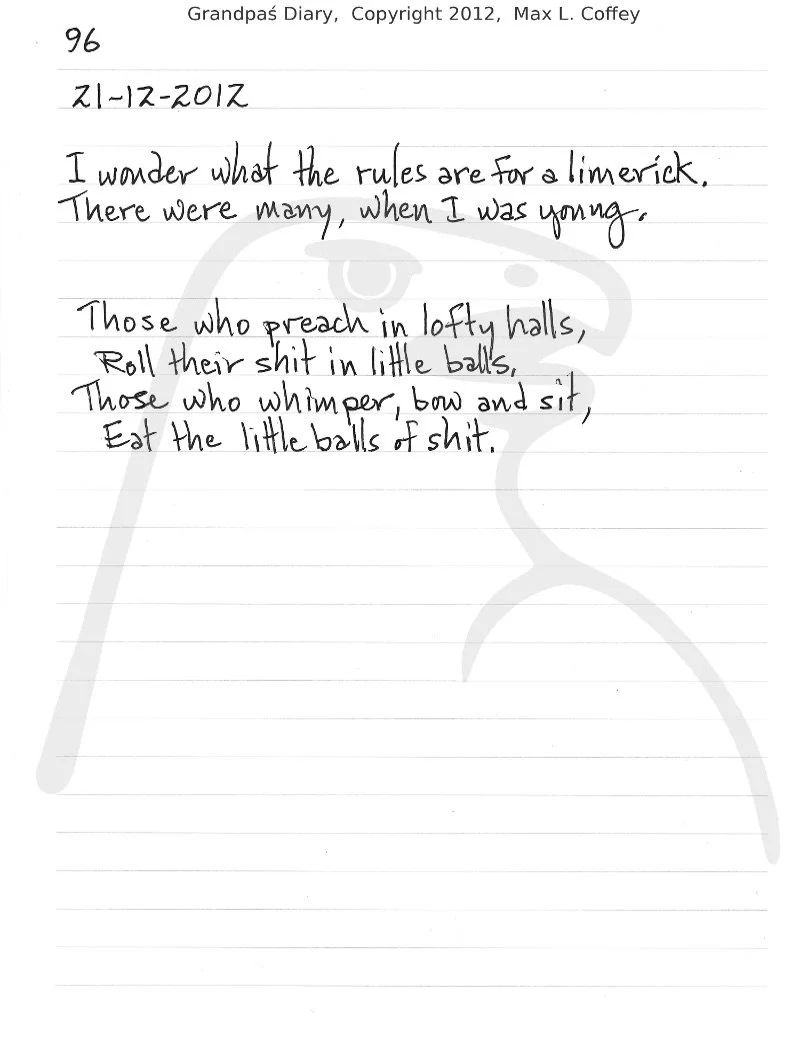 Grandpaś Diary, Copyright 2012, Max L. Coffey
96
21-12-2012
I wonder what the rules are for a limerick.
There were many, when I was young.
Those who preach in lofty halls,
Roll their shit in little balls,
Those who whimper, bow and sit,
Eat the little balls of shit.